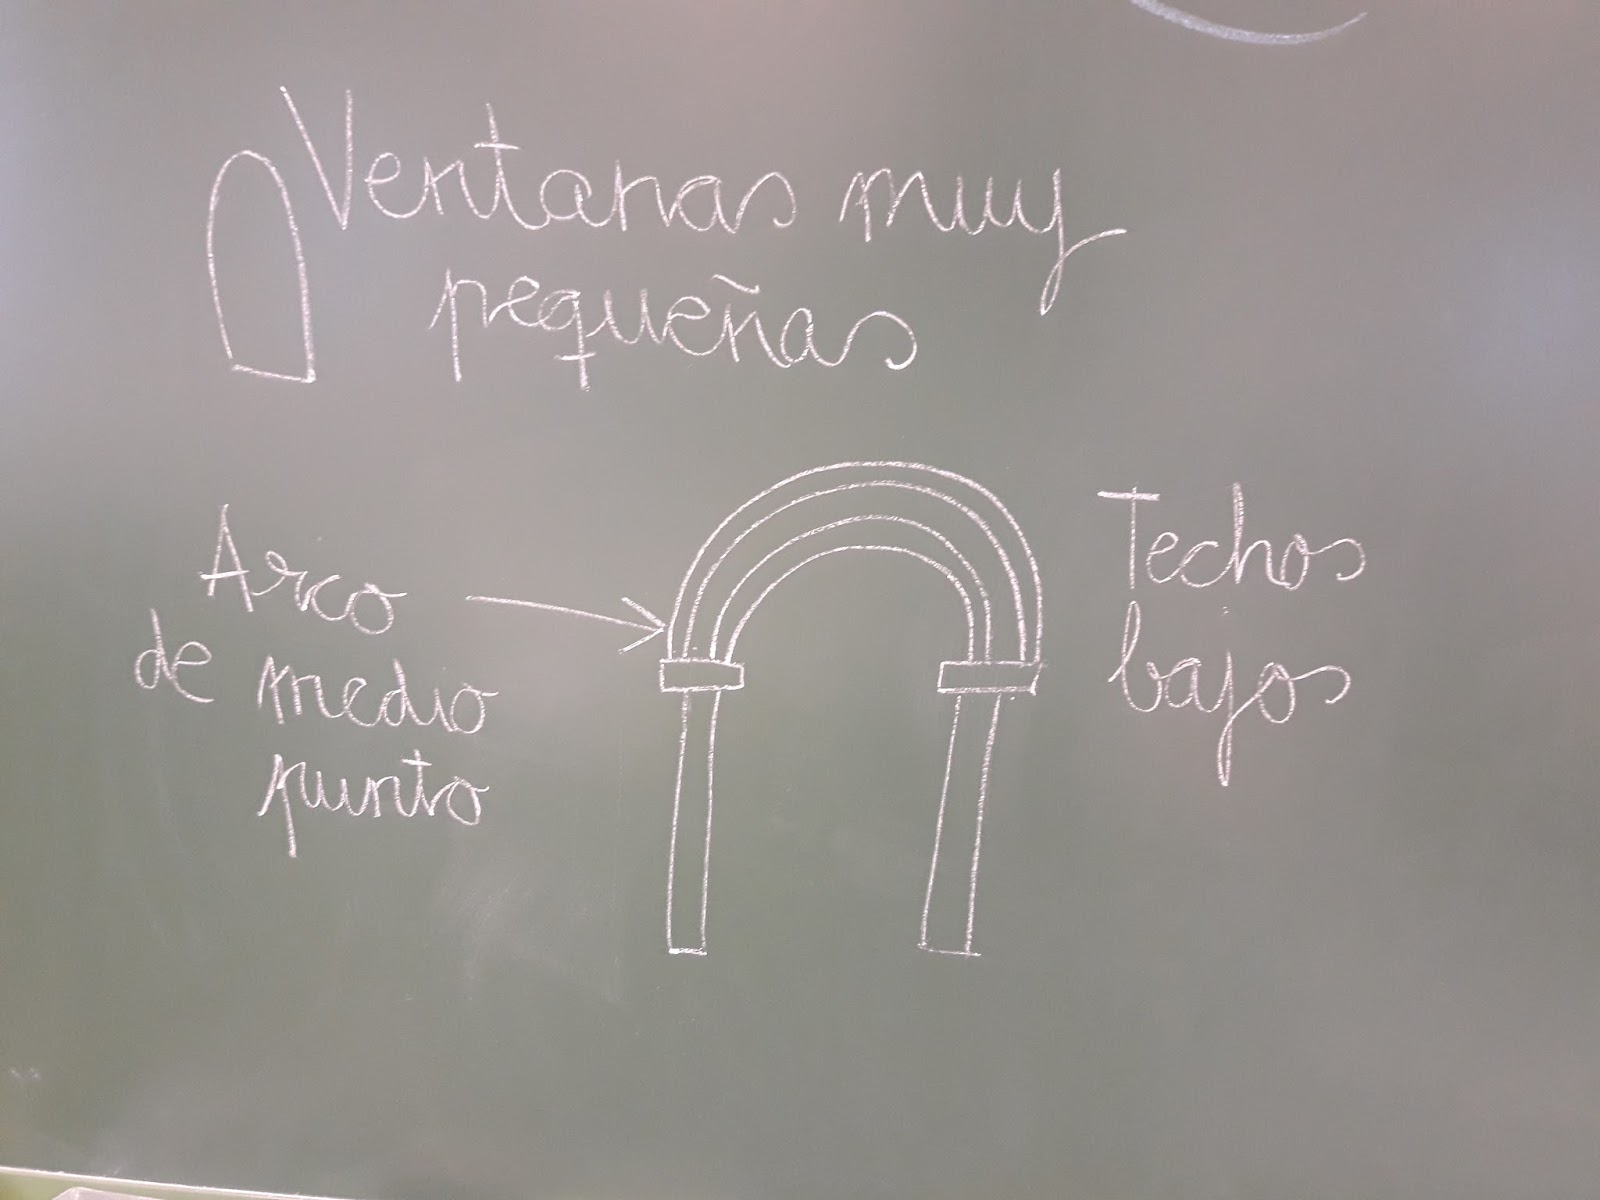 Ventanas muy
pequeñas
Arco
de medio
punto
Techos
bajos